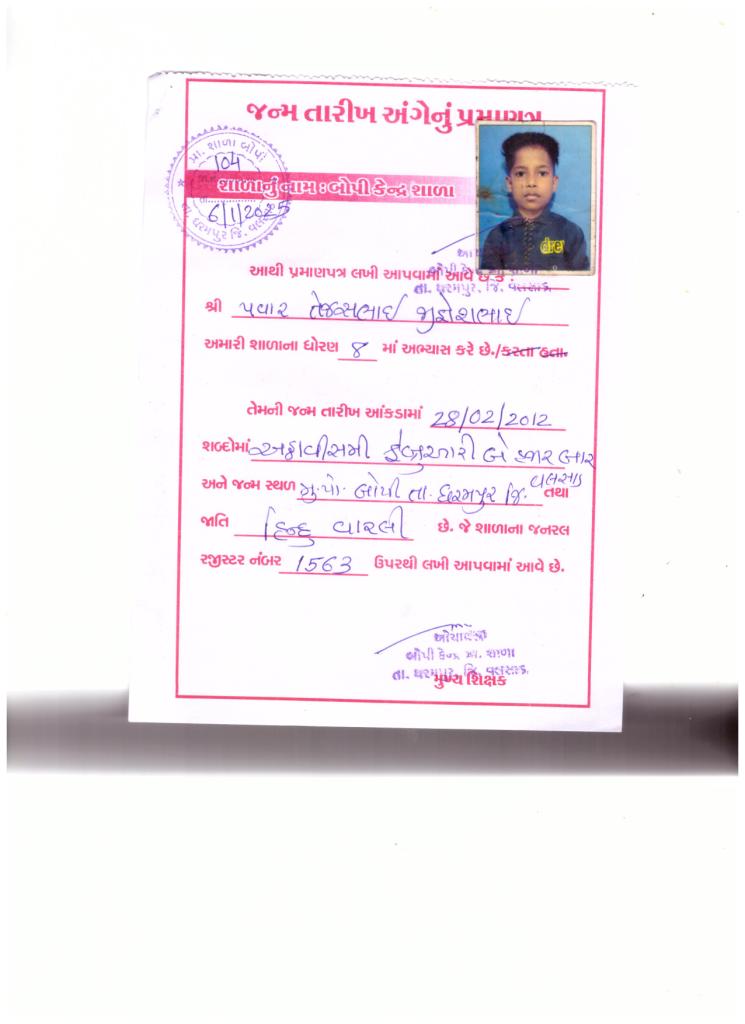 જન્મ તારીખ અંગેનું પ્રમાણત્ર
પ્રા. શાળા બોપી
104
6/1/2025
તા. ધરમપુર જિ. વલસાડ
શાળાનું નામ : બોપી કેન્દ્ર શાળા
drew
આથી પ્રમાણપત્ર લખી આપવામાં આવે છે કે
તા. ધરમપુર, જિ. વલસાડ
શ્રી પવાર તેજસભાઈ
અમારી શાળાના ધોરણ 8 માં અભ્યાસ કરે છે./કરતા હતા.
તેમની જન્મ તારીખ આંકડામાં 28/02/2012
શબ્દોમાં અઠ્ઠાવીસમી ફેબ્રુઆરી બે હજાર બાર
અને જન્મ સ્થળ મુ.પો. બોપી તા. ધરમપુર જિ. વલસાડ તથા
જાતિ હિન્દુ વારલી છે. જે શાળાના જનરલ
રજીસ્ટર નંબર 1563 ઉપરથી લખી આપવામાં આવે છે.
આચાર્યશ્રી
બોપી કેન્દ્ર પ્રા. શાળા
તા. ધરમપુર, જિ. વલસાડ
મુખ્ય શિક્ષક